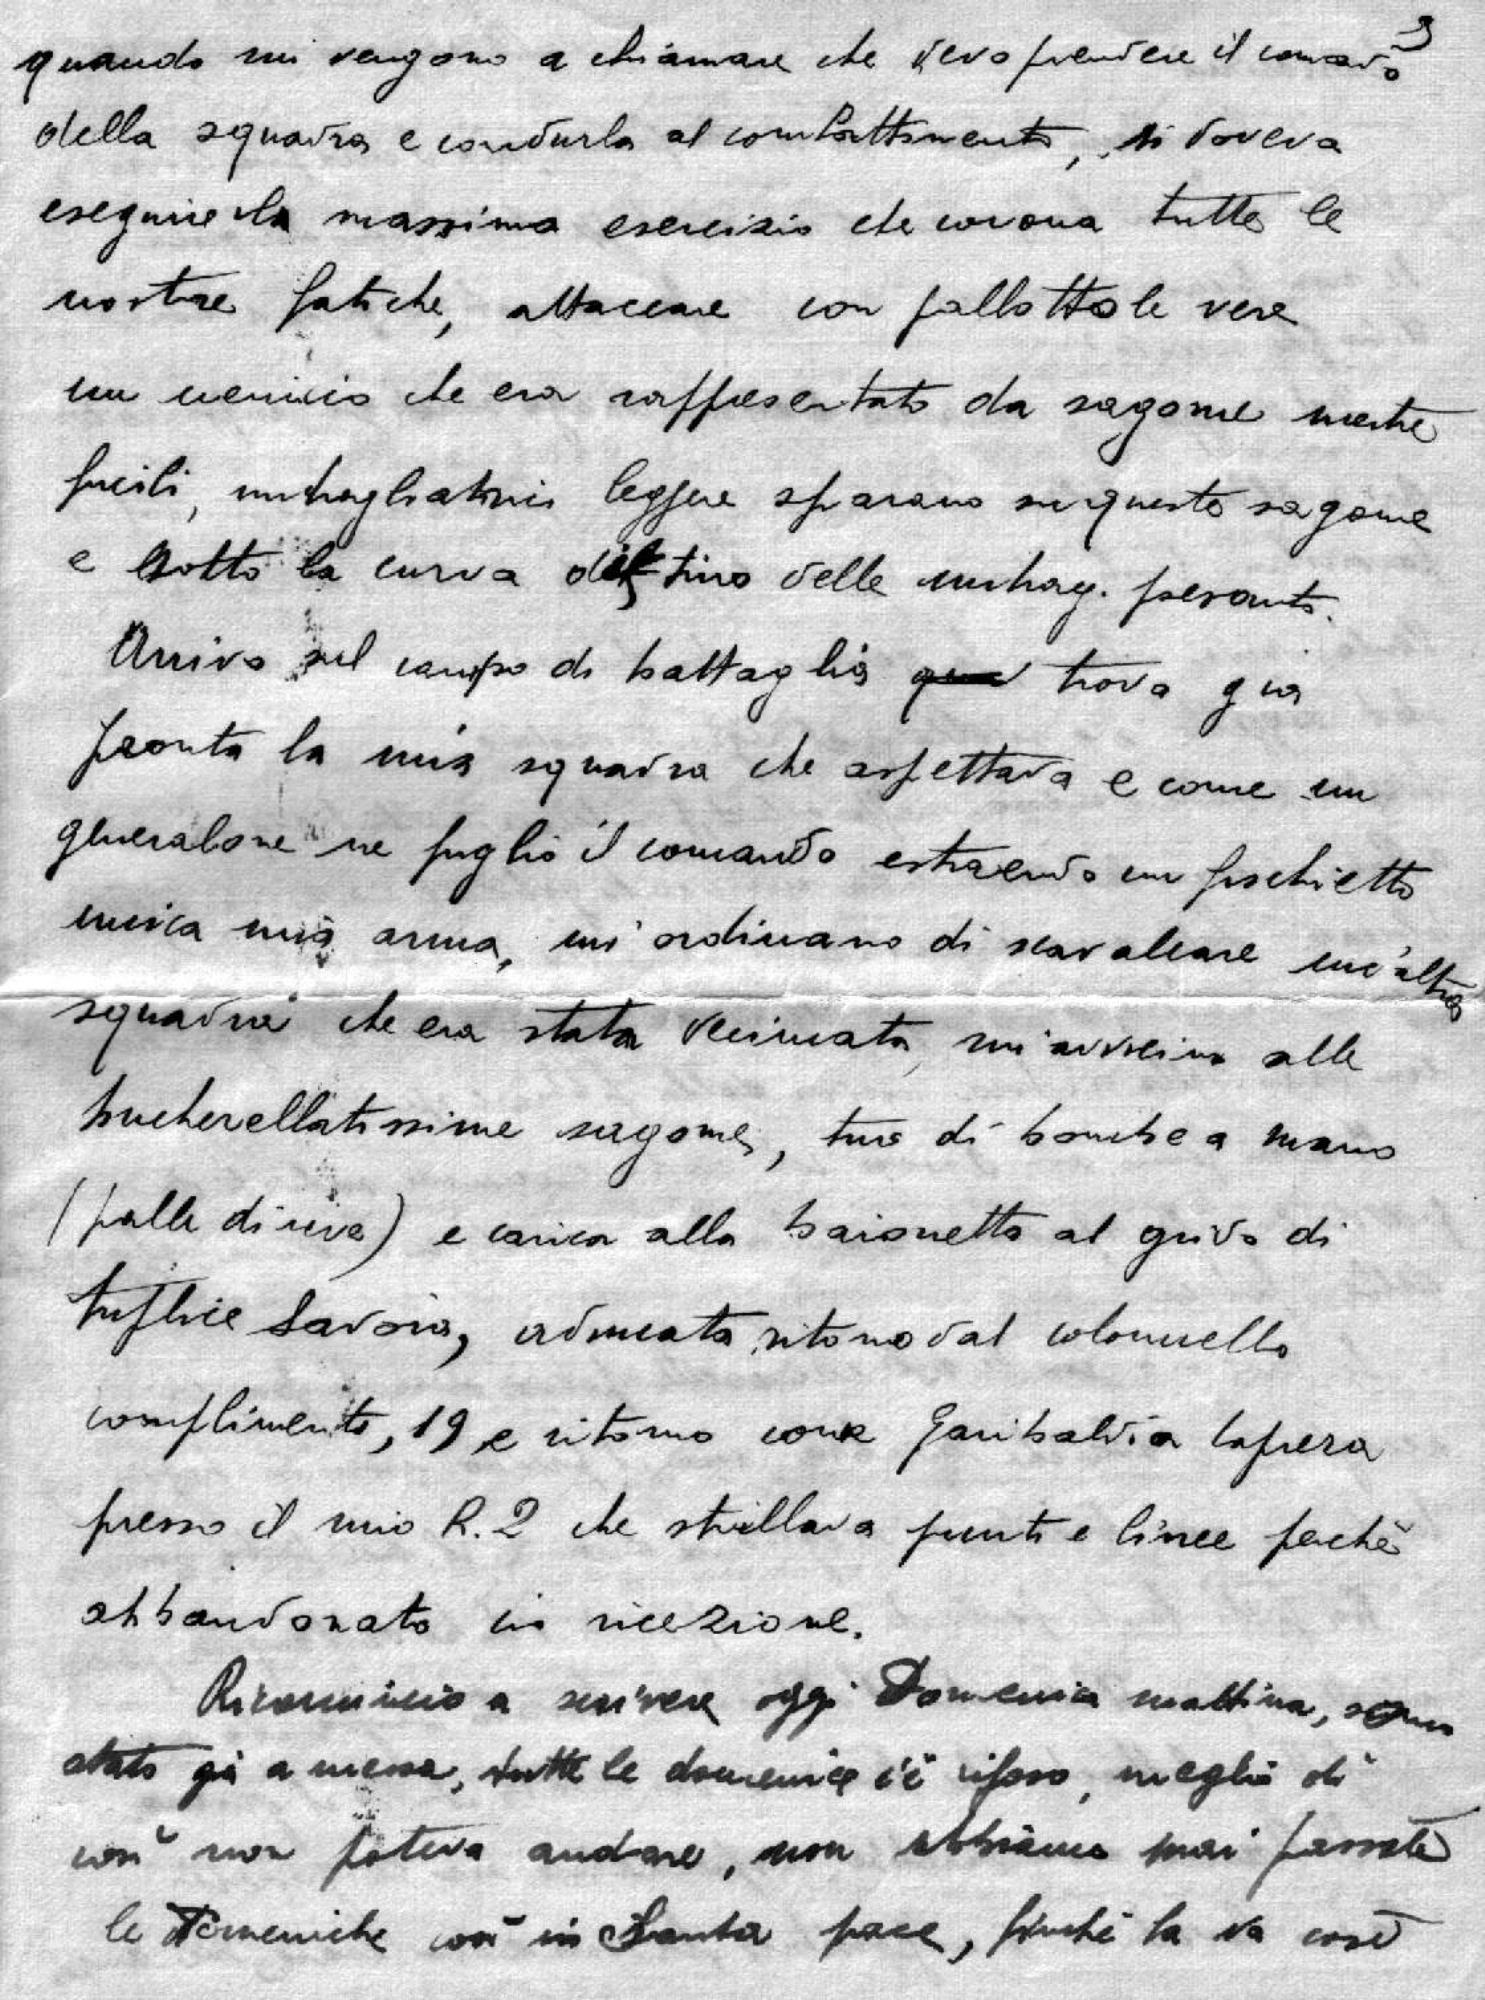 3
quando mi vengono a chiamare che devo prendere il comando
della squadra e condurla al combattimento, si doveva
eseguire la massima esercizio che corona tutte le
nostre fatiche, attaccare con pallottole vere
un nemico che era rappresentato da sagome mentre
fucili, mitragliatrici leggere sparano su queste sagome
e sotto la curva del tiro delle mitrag. pesanti.
Arrivo sul campo di battaglia trovo già
pronta la mia squadra che aspettava e come un
generalone ne piglio il comando estraendo un fischietto
unica mia arma, mi ordinano di scavalcare un'altra
squadra che era stata decimata, mi avvicino alle
bucherellatissime sagome, tiro di bombe a mano
(palle di neve) e carica alla baionetta al grido di
triplice Savoia, adunata, ritorno dal colonnello
complimento, 19 e ritorno come Garibaldi a
presso il mio R.2 che strillava punti e linee perchè
abbandonato in ricezione.
Ricomincio a scrivere oggi Domenica mattina, sono
stato già a messa, tutte le domenice c'è riposo, meglio di
così non poteva andare, non abbiamo mai passate
le Domeniche così in Santa pace, finchè la va così